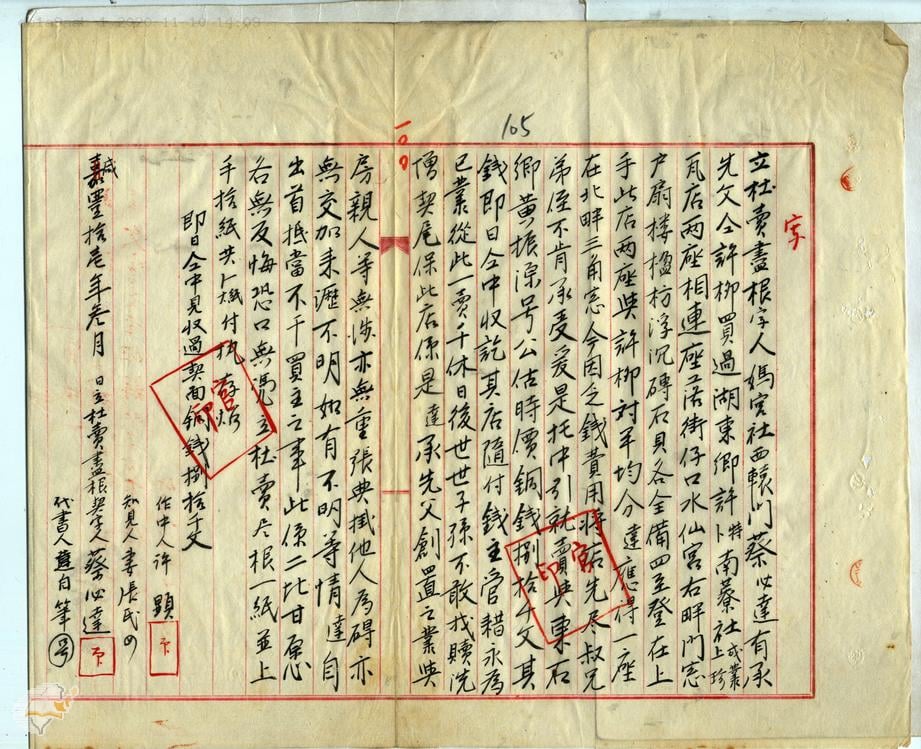 105
一〇〇
字
立杜賣盡根字人媽宮社西轅門蔡必達有承
先父仝許柳買過湖東鄉許特卜南藔社成業上珍
瓦店兩座相連座落街仔口水仙宮右畔門窓
户扇楼楹枋浮沉磚石具各全備四至登在上
手此店两座與許柳対半均分達應得一座
在北畔三角窓今因乏錢費用將店先尽叔兄
弟侄不肯承受爰是托中引就賣與東石
鄉黄振源号公估時價銅錢捌拾千文其
錢即日仝中收訖其店隨付錢主管耤永為
己業從此一賣千休日後世世子孫不敢找贖洗
僧契尾保此店係是達承先父創置之業與
房親人等無涉亦無重張典掛他人為碍亦
無交加来歷不明如有不明等情達自
出首抵當不干買主之事此係二比甘愿
各無反悔恐口無憑立杜賣尽根一紙並上
手拾紙共 付执存炤
即日仝中見收過契面銅錢捌拾千文
官印
官印
作中人許 顕 印
知見人妻張氏
咸
嘉豐拾壱年叁月 日立杜賣盡根契字人蔡必達 印
代書人達自筆 号